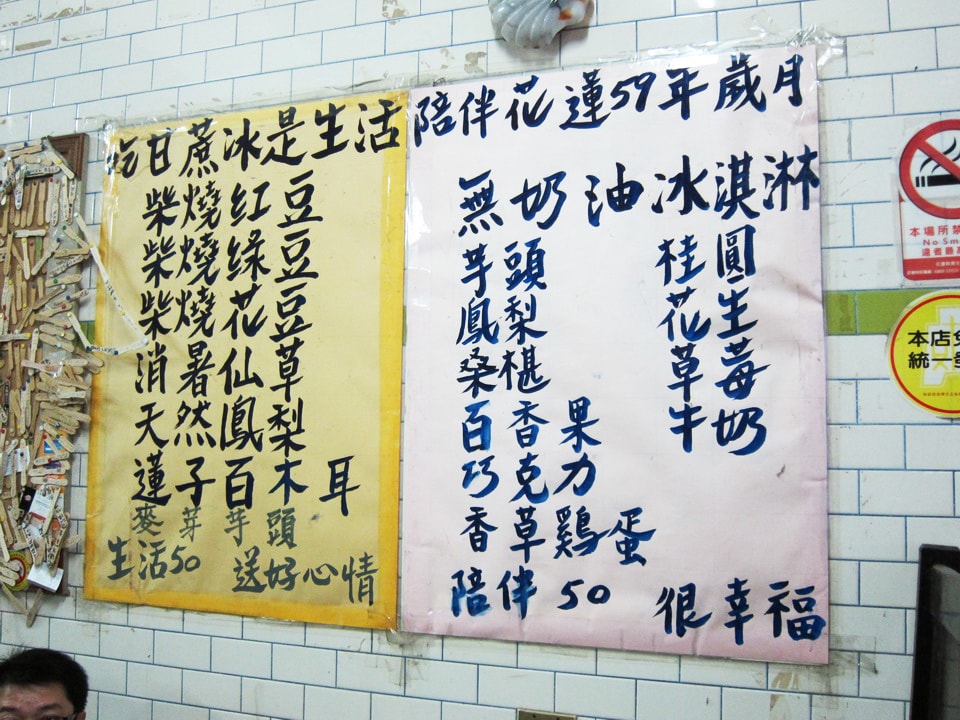 吃甘蔗冰是生活
柴燒紅豆
柴燒綠豆
柴燒花豆
消暑仙草
天然鳳梨
蓮子百木耳
麥芽芋頭
生活50 送好心情
陪伴花蓮59年歲月
無奶油冰淇淋
芋頭 桂圓
鳳梨 花生
桑椹 草莓
百香果 牛奶
巧克力
香草雞蛋
陪伴50 很幸福
本場所禁
No Smo
本店免
統一發